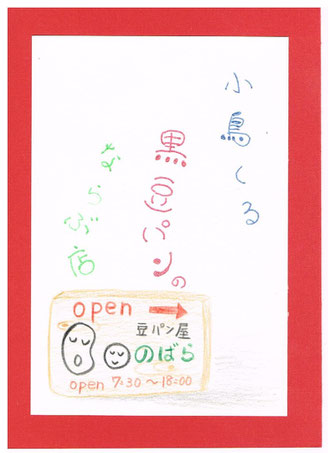 小鳥くる
黒豆パンの
ならぶ店
open →
豆パン屋
のばら
open 7:30～18:00